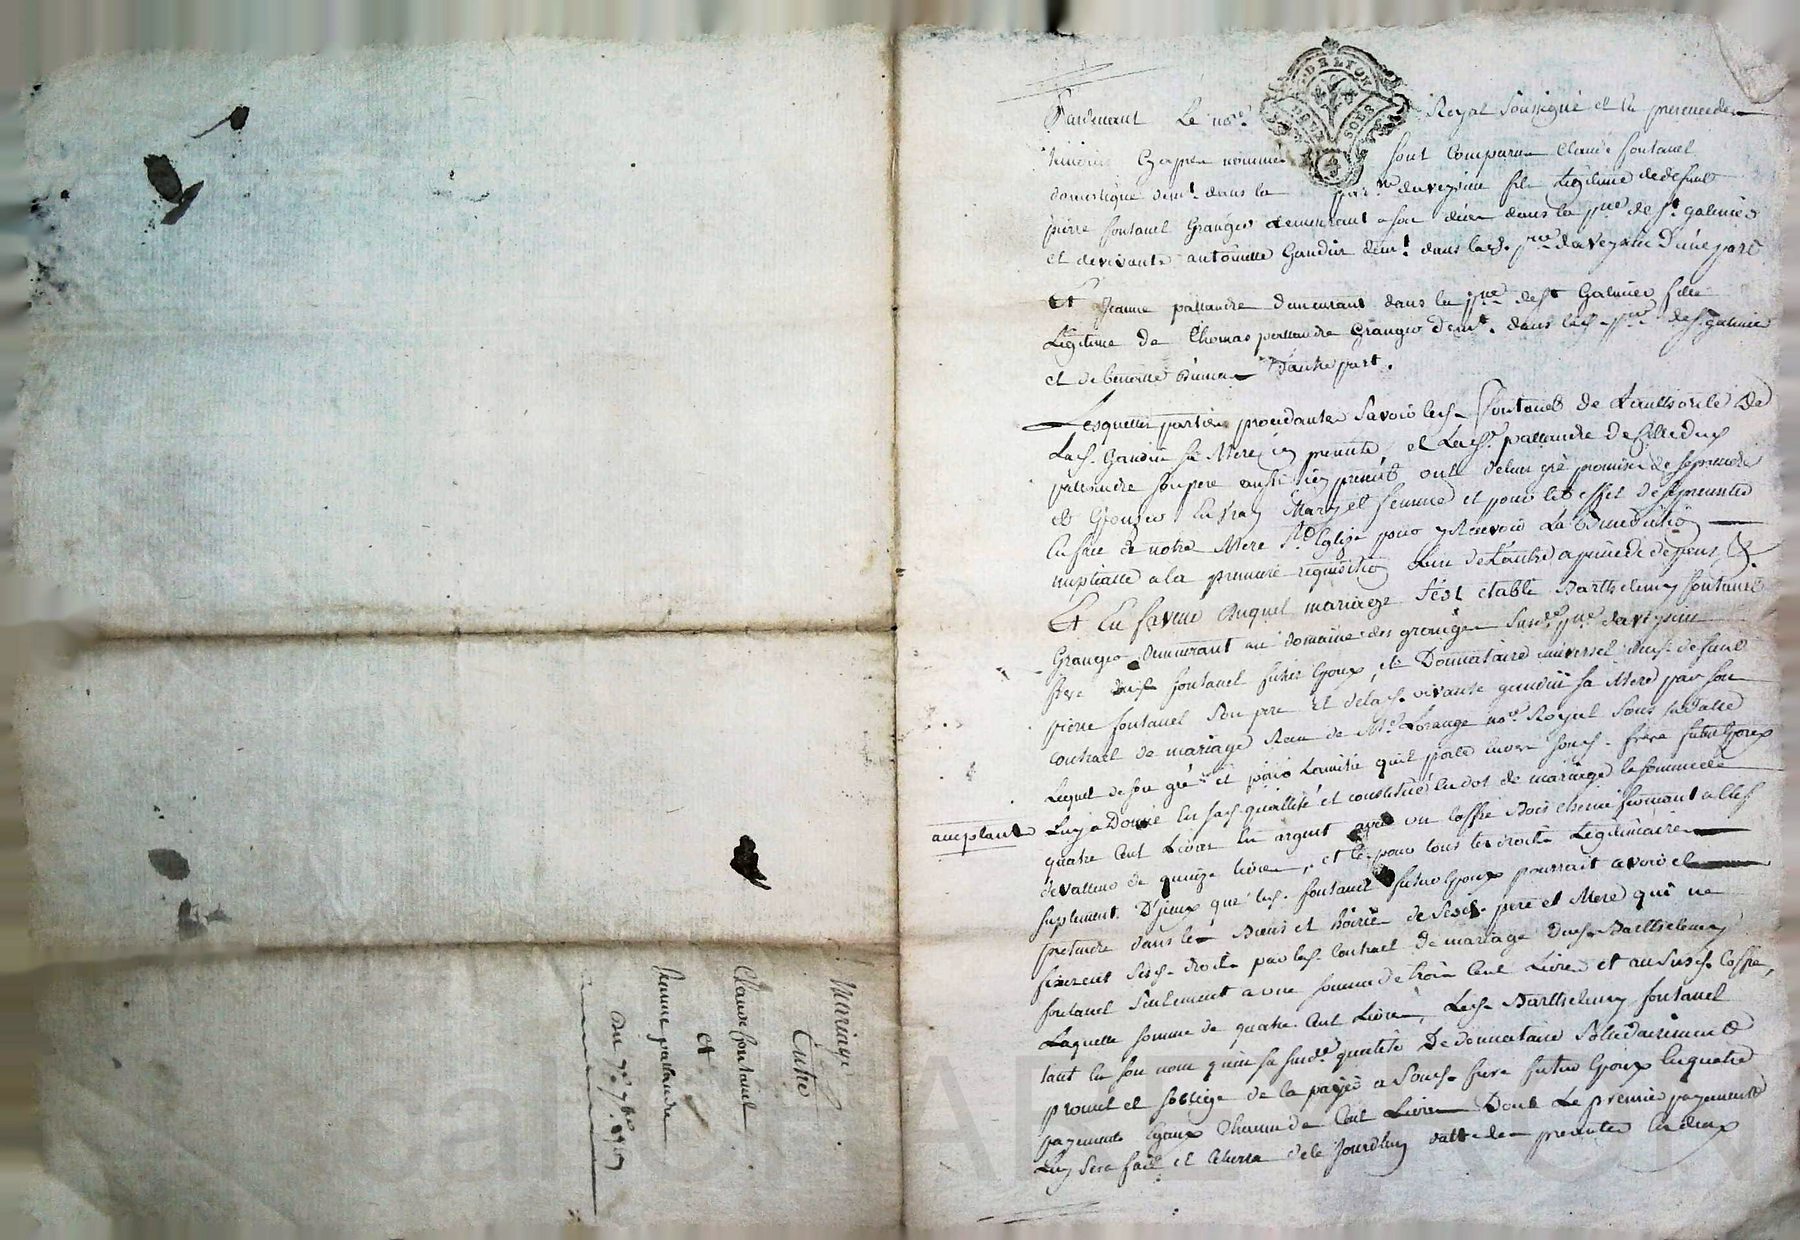 Pardevant Le no.re Royal Soussigné et En presence des
temoins Cy apres nommés sont Comparus Claude fontanel
domestique dem.t dans la parr.se daveizieu fils Legitime de defunt
pierre fontanel Granger demeurant a son deces dans la p.sse de S.t galmier
et de vivante antoinette Gaudin dem.t dans lad. p.sse daveizieu D'une part
Et Jeanne pallandre demeurant dans la p.sse de S.t Galmier fille
Legitime de Thomas pallandre Granger dem.t dans lad. p.sse de S.t galmier
et de benoitte D'autre part.
Lesquelles parties procedantes Savoir led. fontanel de L'authorité De
Lad. Gaudin sa Mere icy presente, et Lad. pallandre de Celle dud.
pallandre son pere aussi icy present ont de leur gré promis de se prendre
et Epouser En vray Mary et femme et pour cet effet de se presenter
En face de notre Mere S.te Eglise pour y Recevoir La Benediction
nuptialle a la premiere requisition Lun de Lautre a peine de depens &
Et En faveur Duquel mariage S'est etably Barthelemy fontanel
Granger demeurant au domaine des granges Susd. p.sse daveizieu
frere dud. fontanel futur Epoux, et Donnataire universel dud. defunt
pierre fontanel Son pere et de lad. vivante gaudin sa Mere par son
contract de mariage Recu de M.e Lorange no.re Royal Sous sa datte
Lequel de son gré et pour Lamitié quil porte envers Sond. frere futur Epoux
acceptant Luy a Donné En sad. quallité et constitué En dot de mariage la somme de
quatre Cent Livres En argent avec un Coffre Bois chene fermant a Clef
de valleur de quinze livres, et ce pour tous les droits Legitimaires
suplement D'jceux que led. fontanel futur Epoux pourrait avoir et
pretendre dans les Biens et hoirie de Sesd. pere et Mere qui ne
fixerent Sesd. droits par led. Contract de mariage Dud. Barthelemy
fontanel Seulement a une somme de trois Cent Livres et au susd. Coffre,
Laquelle somme de quatre Cent Livres, Led. Barthelemy fontanel
tant En son nom qu'en sa susd. qualité De donnataire Sollidairement
promet et soblige de la payer a Sond. frere futur Epoux En quatre
payements Egaux Chacun de Cent Livres Dont Le premier payement
Luy sera fait et Echerra de ce Jourdhuy datte des presentes En deux
Mariage
Entre
Claude fontanel
et
Jeanne pallandre
Du 7.e 7bre